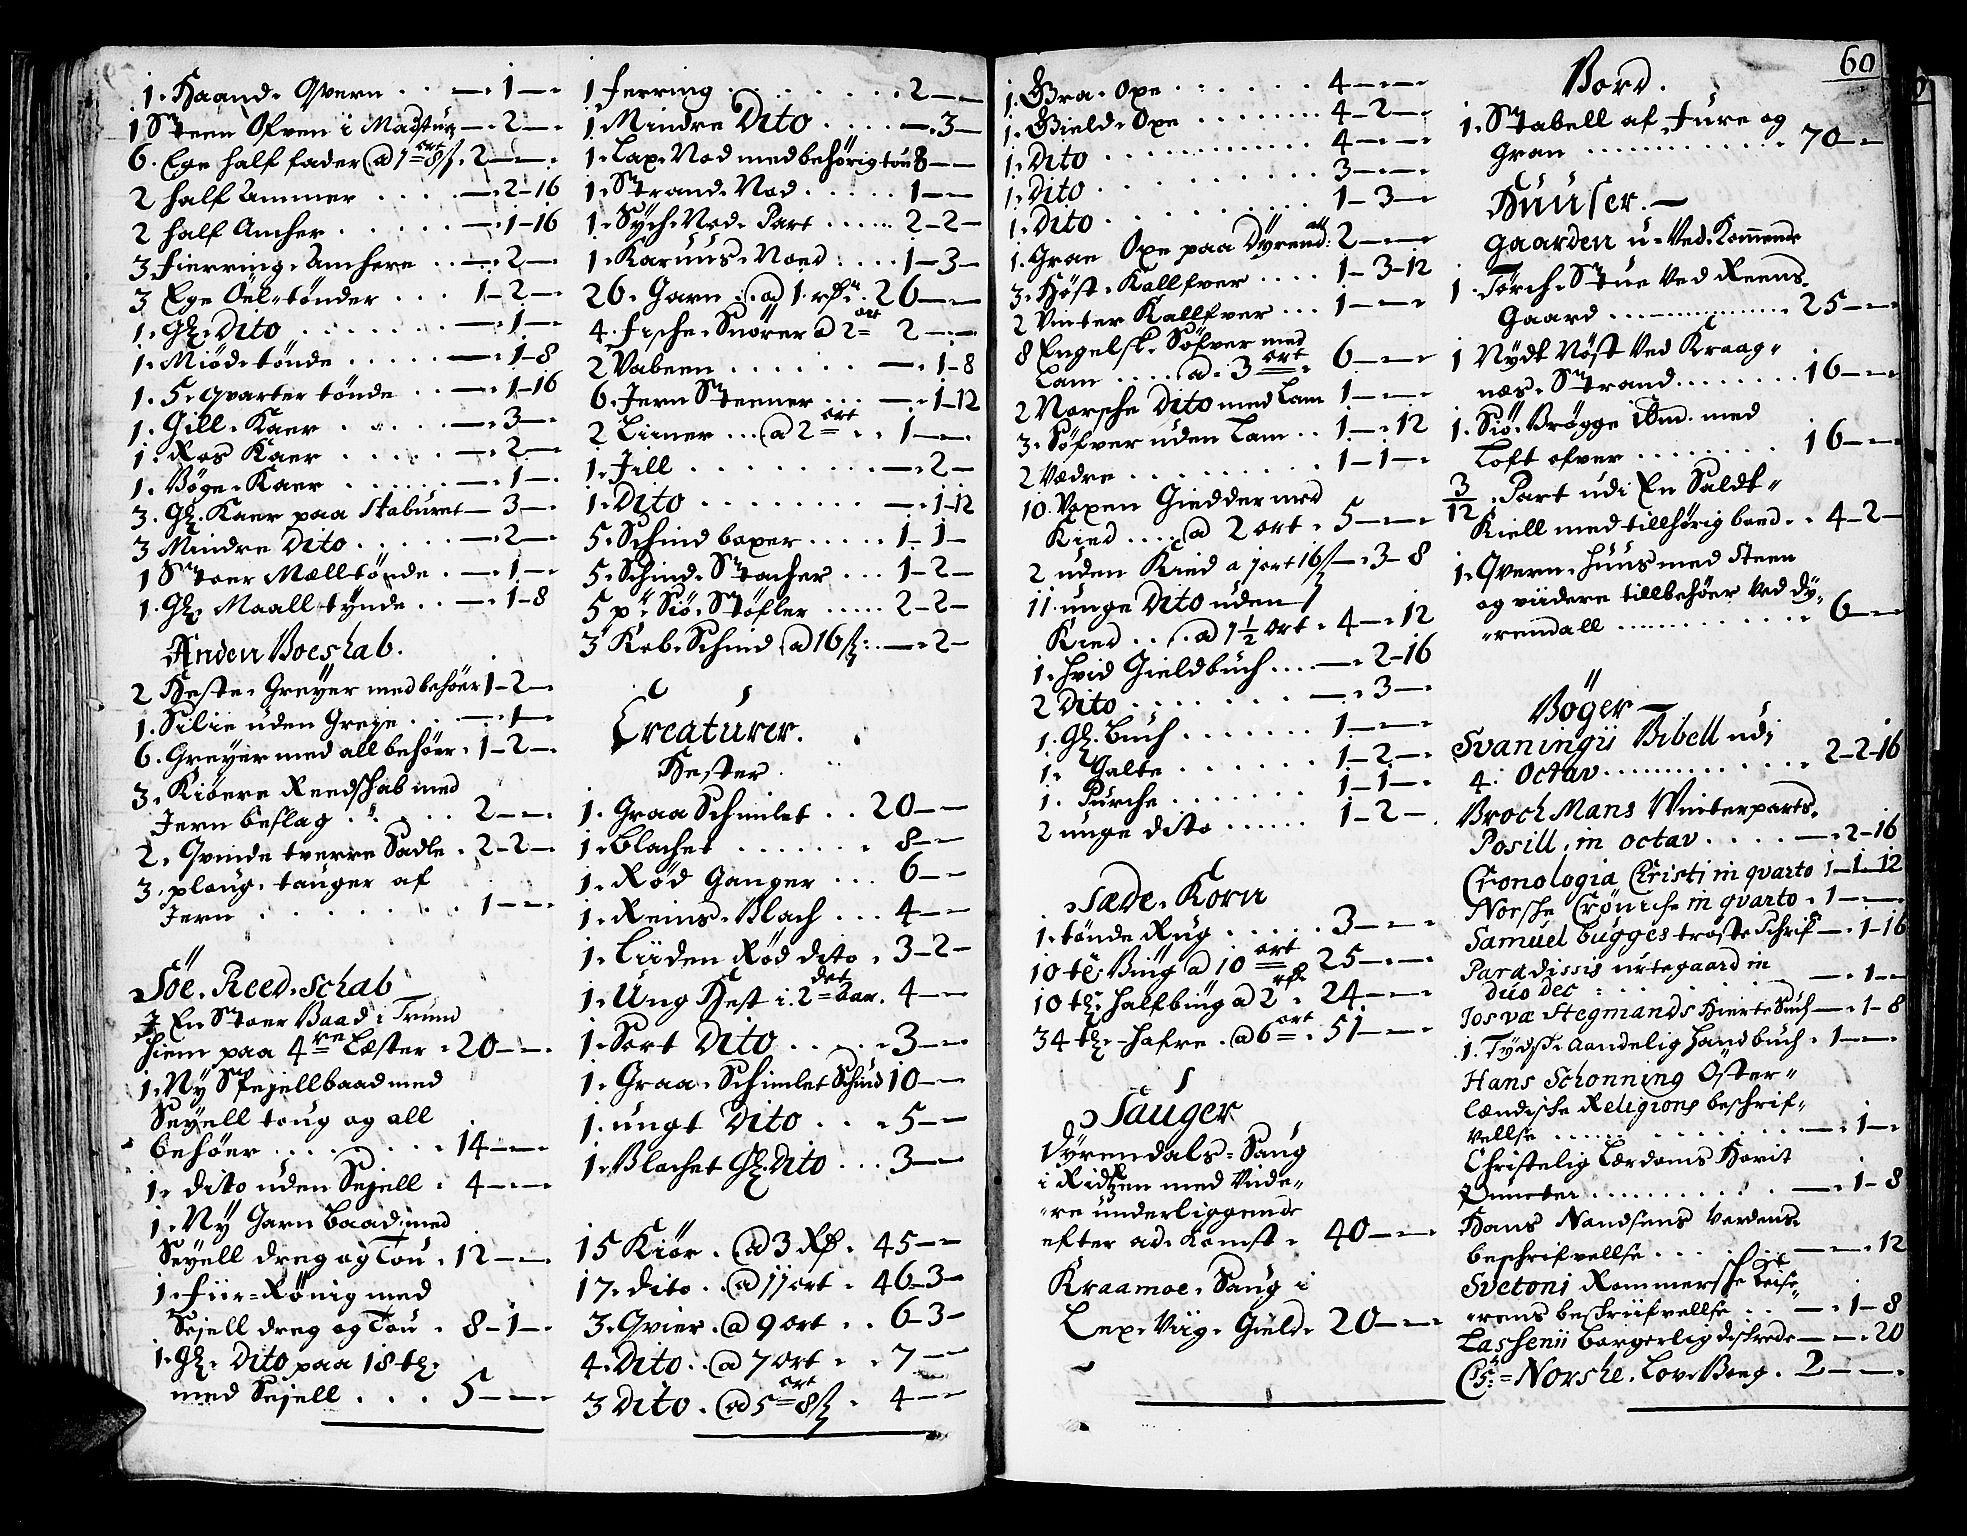 1. Haand. Qvern . . — 1 —
1 Steen Ofven i Madstue — 2 —
6. Ege half fader @ 1 ort 8 ß. 2 — —
2 half Ammer . . . . — 2 - 16
2 half Ancher . . . . . — 1 - 16
3 fierring. Anchere . . — 2 —
3 Ege Oel. tønder . . . 1 - 2 —
1. Gl. Dito . . . . . . — 1 —
1. Miød. tønde . . . . . — 1 - 8
1. 5. qvarter tønde . . — 1 - 16
1. Gill. Kaer . . . . . — 3 —
1. Ros Kaer . . . . . — 2 —
1. Bøge. Kaer . . . . . — 1 —
3. Gl. Kaer paa Staburet — 3 —
3 Mindre Dito . . . . . — 2 —
1 Stoer Mælltønde . — 1 —
1. Gl. Maall tynde . . — 1 - 8
Anden Boeskab.
2 Heste. Greyer med behøer 1 - 2 —
1. Silie uden Greje . . — 1 —
6. Greyer med all behøer. 1 - 2 —
3. Kiøere Reedskab med
Jern beslag . . . . 2 — —
2. Qvinde tverre Sadle . 2 - 2 —
3. ploug. tanger af
Jern . . . . . . . 1 — —
Söe. Reed. Schab
1 En Stoer Baad i Trund
hiem paa 4re Læster . 20 — —
1. Ny Spejellbaad med
Seyell toug og all
behøer . . . . . . . 14 — —
1. dito uden Sejell . 4 — —
1. Ny Garn baad. med
Seyell dreg og Tou . 12 — —
1. fiir = Rønig med
Sejell dreg og Tou . 8 - 1 —
1. Gl. Dito paa 18 tl.
med Sejell . . . 5 — —
1 ferring . . . . . . . . 2 — —
1. Mindre Dito . . . . — 3 —
1. Lax. Nod med behørig tou 8 — —
1. Strand. Nod . . . . . 1 — —
1. Sych. Nod. Part . . . . . . 2 - 2 —
1. Karuus. Noed . . . . 1 - 3 —
26. Garn . . @ 1. rdr. 26 — —
4. fische. Snörer @ 2 ort 2 — —
2 Vabeen . . . . . . — 1 - 8
6. Jern Steener . . . — 1 - 12
2 Liiner . . . @ 2 ort . . 1 — —
1. Jill . . . . . . . . — 2 —
1. Dito . . . . . . . . — 1 - 12
5. Schind boxer . . . . . 1 - 1 —
5. Schind. Stacher . . . 1 - 2 —
5 pr. Siø. Støfler . . . . . 2 - 2 —
3 Kob. Schind @ 16 ß: — 2 —
Creaturer.
Hester.
1. Graa Schimlet . . 20 — —
1. blachet . . . . . . . 8 — —
1. Rød Ganger . . . 6 — —
1. Reins. Blach . . . 4 — —
1. Liiden Rød dito . 3 - 2 —
1. Ung Hest i. 2det Aar. 4 — —
1. Sort Dito . . . . . 3 — —
1. Graa. Schimlet Schiud 10 — —
1. ungt Dito . . . 5 — —
1. Blachet Gl. Dito . . . 3 — —
15 Kiör . @ 3 Rdr. 45 — —
17. dito . @ 11 ort . 46 - 3 —
3. Qvier . @ 9 ort . . 6 - 3 —
4. Dito . . @ 7 ort . . 7 — —
3 Dito . @ 5 ort 8 ß . 4 — —
60
1. Graa. Oxe . . . . . . 4 — —
1. Gield. Oxe . . . . . . . 4 - 2 —
1. Dito . . . . . . . . . . . 4 — —
1. Dito . . . . . . . . . . 3 — —
1. Dito . . . . . . . . . . 1 - 3 —
1. Graae Oxe paa Dyrendall: 2 — —
3. Höst. Kallfver . . . . 1 - 3 - 12
2 Vinter Kallfver . . . 1 — —
8 Engelsk. Søfver med
Lam . . . . @ . 3 ort . 6 — —
2 Norsche Dito med Lam 1 — —
3. Søfver uden Lam . . 1 — 12
2 Vædre . . . . . . . . . 1 - 1 —
10. Voxen Giedder med
Kied . . . . @ 2 ort . 5 — —
2 uden Kied a 1 ort 16 ß — 3 - 8
11. unge Dito uden
Kied . . . @ 1 1/2 ort . 4 — 12
1. hvid Gieldbuch . . . — 2 - 16
2 Dito . . . . . . . — 3 —
1. Gl. Buch . . . . . . . 1 — —
1. Galte . . . . . . . 1 - 2 —
1. Purche . . . . . . . 1 - 1 —
2 unge dito . . . . . . 1 - 2 —
Sæde. Korn
1. tönde Rug . . . . . 3 — —
10 tl. Biug @ 10 ort 25 — —
10 tl. halfbiug @ 2 rdr . 24 — —
34 tl. hafre . @ 6 ort . 51 — —
Sauger
Dyrendals = Saug
i Ridtzen med Vide„
„re underliggende
efter ad. Komst . 40 — —
Kraamoe. Saug i
Lex. Viig. Gield. 20 — —
Bord.
1. Stabell af Fure og
Gran . . . . . . . . . . . 70 — —
Huuser. —
Gaarden u. Ved. Kommende
1. Törch. Stue Ved Reens.
Gaard . . . . . . . . . . . 25 — —
1 Nydt Nöst Ved Kraag„
næs. Strand . . . . . . . . 16 — —
1. Siö. Brøgge ibm. med
Loft ofver . . . . . . . . 16 — —
3/12. Part udi En Saldt„
Kiell med tillhörig boed . . 4 - 2 —
1. Qvern. huus med Steen
og viidere tillbehøer Ved Dy„
„rendall . . . . . . . . . . . 6 — —
Bøger —
Svaningii Bibell udi
4. Octav . . . . . . . . . . . 2 - 2 - 16
Broch Mans Winterparts.
Posill. in octav . . . . — 2 - 16
Cronologia Christi in qvarto 1 - 1 - 12
Norsche Crönicke in qvarto . 1 — —
Samuel bugges trøste Schrift — 1 - 16
Paradissis urtegaard in
duo dec . . . . . . . — 1 —
Josvæ Stegmands Hierte Such — 1 - 8
1. Tydsk. Aandelig Handbuch . 1 — —
Hans Schonning Öster„
lændische Religions beschrif„
vellse . . . . . . . . . . . . — 1 —
Christelig Lærdoms Horit
Puncter . . . . . . . . . . — 1 - 8
Hans Nandsens Verdens.
beschrifvellse . . . . — — 12
Svetoni Rommersche Keise„
„rens beschriifvellse . . — 1 - 8
Lassenii borgerlig diskrede — — 20
C 5: = Norshe. Lov. Boeg . 2 — —